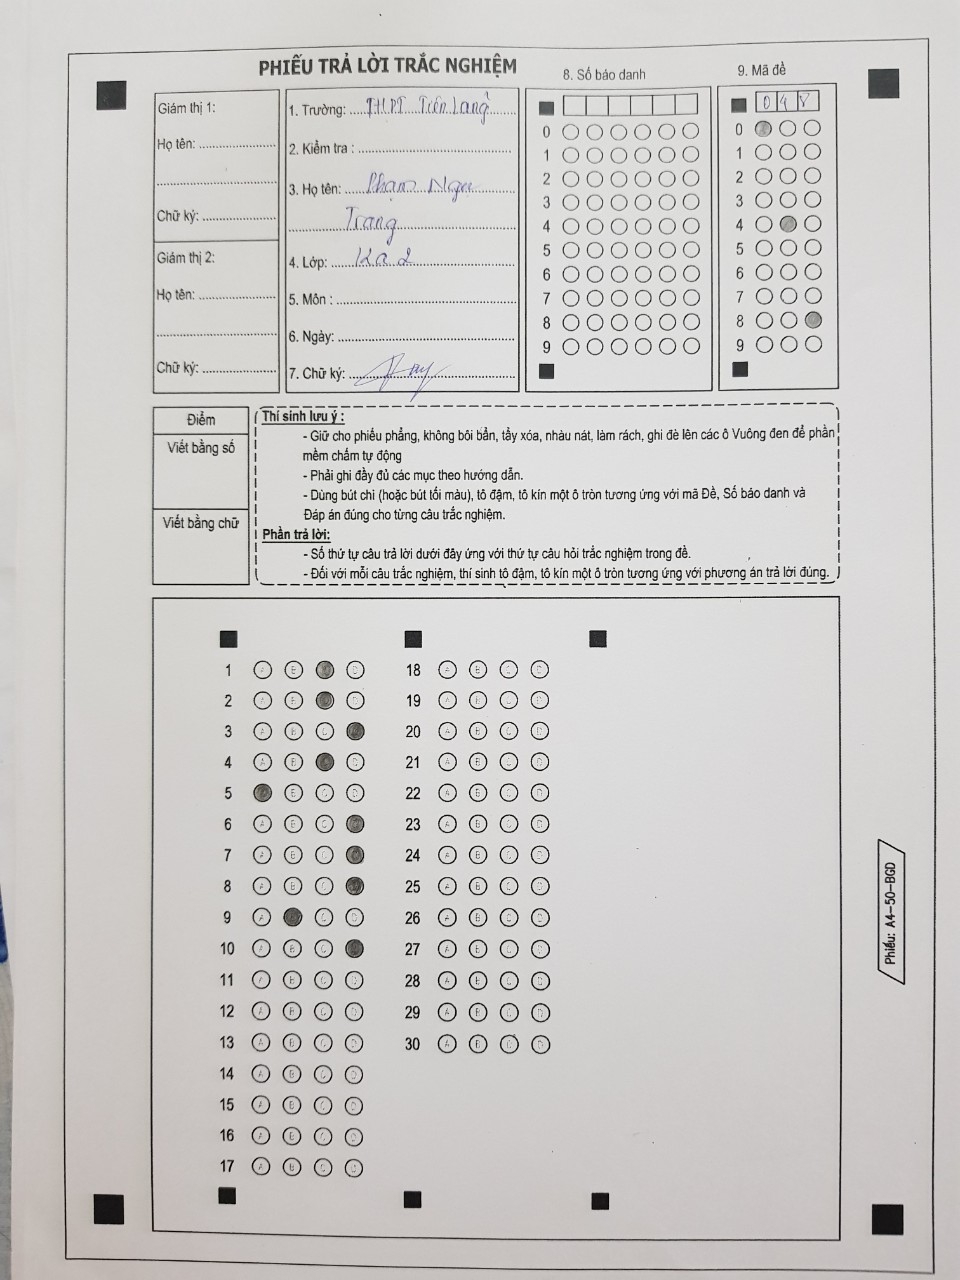 PHIẾU TRẢ LỜI TRẮC NGHIỆM
8. Số báo danh
9. Mã đề
Giám thị 1:
Họ tên:
Chữ ký:
Giám thị 2:
Họ tên:
Chữ ký:
1. Trường: THPT Tiên Lang
2. Kiểm tra :
3. Họ tên: Phạm
Trang
4. Lớp:
5. Môn :
6. Ngày:
7. Chữ ký:
0
1
2
3
4
5
6
7
8
9
0 4 8
0
1
2
3
4
5
6
7
8
9
Điểm
Viết bằng số
Viết bằng chữ
Thí sinh lưu ý :
- Giữ cho phiếu phẳng, không bôi bẩn, tẩy xóa, nhàu nát, làm rách, ghi đè lên các ô Vuông đen để phần
mềm chấm tự động
- Phải ghi đầy đủ các mục theo hướng dẫn.
- Dùng bút chì (hoặc bút tối màu), tô đậm, tô kín một ô tròn tương ứng với mã Đề, Số báo danh và
Đáp án đúng cho từng câu trắc nghiệm.
Phần trả lời:
- Số thứ tự câu trả lời dưới đây ứng với thứ tự câu hỏi trắc nghiệm trong đề.
- Đối với mỗi câu trắc nghiệm, thí sinh tô đậm, tô kín một ô tròn tương ứng với phương án trả lời đúng.
1
2
3
4
5
6
7
8
9
10
11
12
13
14
15
16
17
18
19
20
21
22
23
24
25
26
27
28
29
30
Phiếu: A4-50-BGD